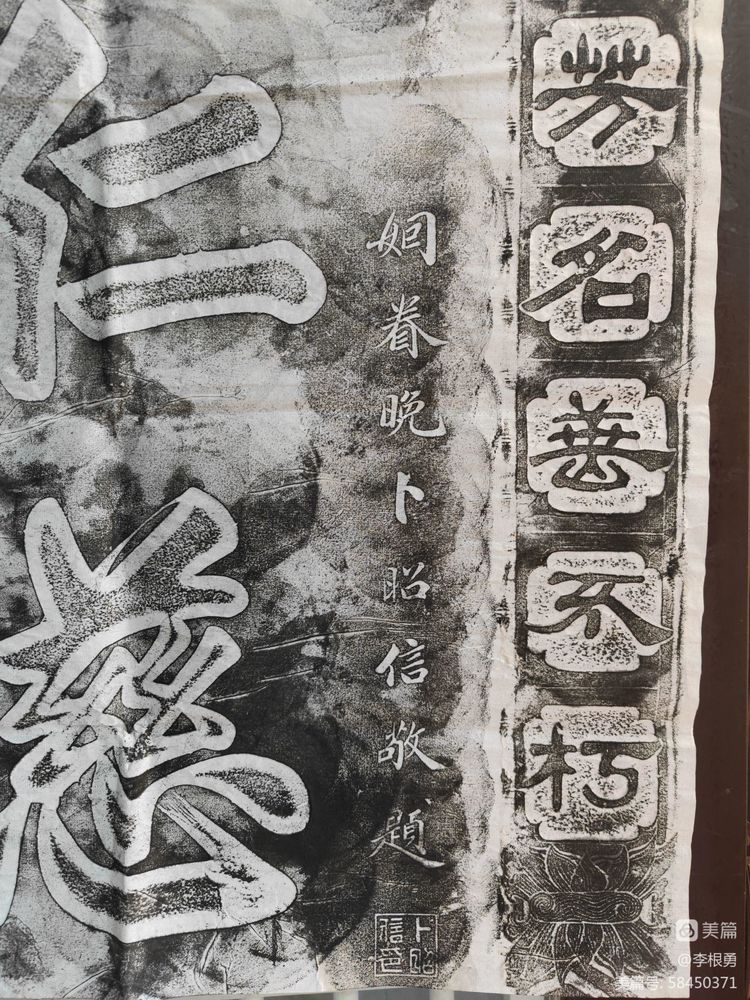 芳名善不朽
姻眷晚卜昭信敬題
卜昭信
仁慈
美篇
@李根勇
美篇号: 58450371